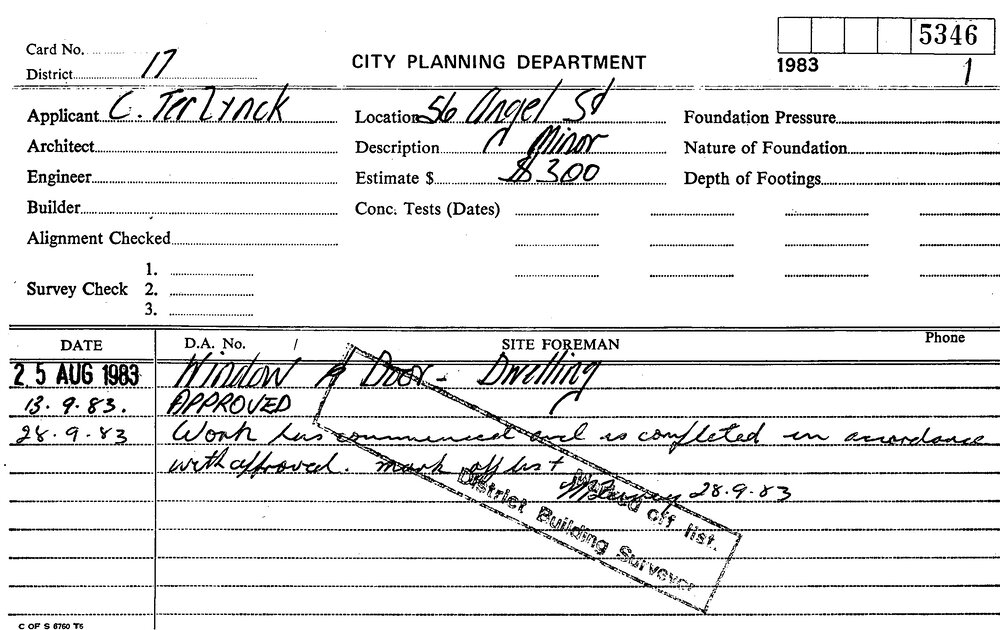 5346
Card No.
1983
1
District 17
CITY PLANNING DEPARTMENT
Applicant C. Terlynck
Location 56 Angel St
Foundation Pressure
Architect
Description Minor
Nature of Foundation
Engineer
Estimate $ $300
Depth of Footings
Builder
Conc. Tests (Dates)
Alignment Checked
1.
Survey Check 2.
3.
DATE D.A. No. / SITE FOREMAN Phone
25 AUG 1983 Window & Door - Dwelling
13.9.83. APPROVED
28.9.83 Work has commenced and is completed in accordance
with approved. mark off list
28.9.83
off list.
District Building Surveyor
C OF S 6760 T6